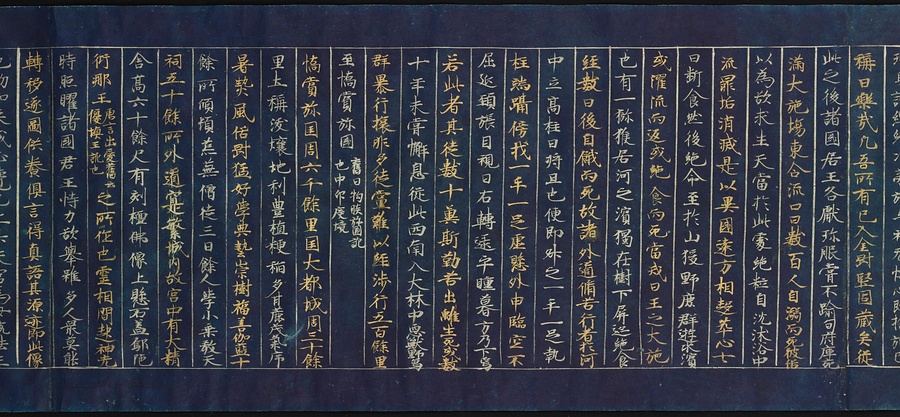 稱曰樂哉凡吾所有已入金剛堅固藏矣從
此之後諸國君王各獻珎服甞不踰旬府庫充
滿大施場東合流口日數百人自溺而死彼俗
以為欲求生天當於此處絶粒自沈沐浴中
流罪垢消滅是以異國遠方相趍萃止七
日斷食然後絶命至於山猨野鹿群遊水濱
或濯流而返或絶食而死當戒日王之大施
也有一獼猴居河之濱獨在樹下屏迹絶食
經數日後自餓而死故諸外道脩苦行者於河
中立高柱日將旦也便即昇之一手一足執
柱端躡傍杙一手一足虛懸外申臨空不
屈延頸張目視日右轉逮乎曛暮方乃下焉
若此者其徒數十冀斯勤苦出離生死或數
十年未甞懈息從此西南入大林中惡獸野象
群暴行旅非多徒黨難以經涉行五百餘里
至憍賞弥國 舊曰拘睒弥國訛也中印度境
憍賞弥国周六千餘里国大都城周三十餘
里土稱沃壤地利豐植粳稻多甘蔗茂氣序
暑熱風俗剛猛好學典藝崇樹福善伽藍十
餘所傾頓荒蕪僧徒三百餘人學小乗教天
祠五十餘所外道寔繁城內故宮中有大精
舍高六十餘尺有刻檀佛像上懸石蓋鄔陁
衍那王 唐言出愛舊云優填王訛也 之所作也靈相間起神光
時照曜諸國君王恃力欲舉雖多人衆莫能
轉移遂圖供養俱言得真語其源迹即此像